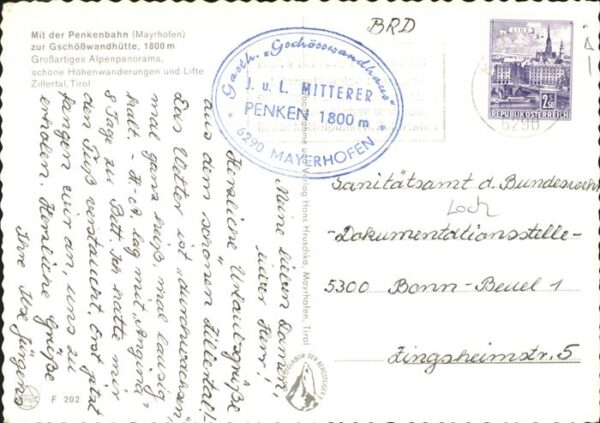 Mit der Penkenbahn (Mayrhofen)
zur Gschößwandhütte, 1800 m
Großartiges Alpenpanorama,
schöne Höhenwanderungen und Lifte
Zillertal, Tirol
BRD
Gasth. „Gschösswandhaus"
J. u. L. MITTERER
PENKEN 1800 m
* 6290 MAYERHOFEN *
LINZ
2.50
REPUBLIK ÖSTERREICH
6290
Meine lieben Damen,
lieber Herr!
Herzliche Urlaubsgrüße
aus dem schönen Zillertal!
Das Wetter ist „durchwachsen",
mal ganz heiß, mal lausig
kalt - lag mit „Angina"
8 Tage zu Bett. Ich hatte mir
den Fuß verstaucht. Erst jetzt
fangen wir an, uns zu
erholen. Herzliche Grüße
Ihre Ilse Jürgens
Verlag Hans Hruschka, Mayrhofen, Tirol
Sanitätsamt d. Bundeswehr
Loch
-Dokumentationsstelle-
5300 Bonn-Beuel 1
Zingsheimstr. 5
F 202